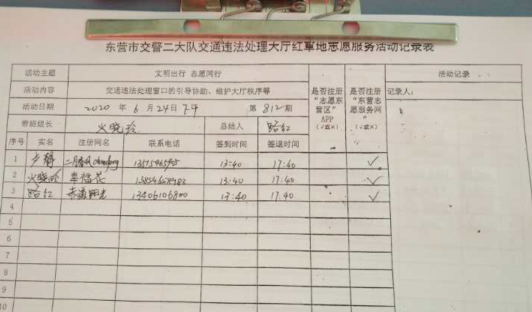 东营市交警二大队交通违法处理大厅红草地志愿服务活动记录表
活动主题 文明出行 志愿同行 活动记录
活动内容 交通违法处理窗口的引导协助、维护大厅秩序等 是否注册“志愿东营区”APP（√或×） 是否注册“东营志愿服务网”（√或×） 记录人：
活动日期 2020年6月24日下午 第812期
带班组长 火晓玲 总结人 路红
序号 实名 注册网名 联系电话 签到时间 签退时间
1 13:40 17:40 ✓
2 火晓玲 幸福花 13:40 17:40 ✓
3 路红 13406106800 13:40 17:40 ✓
4
5
6
7
8
9
10